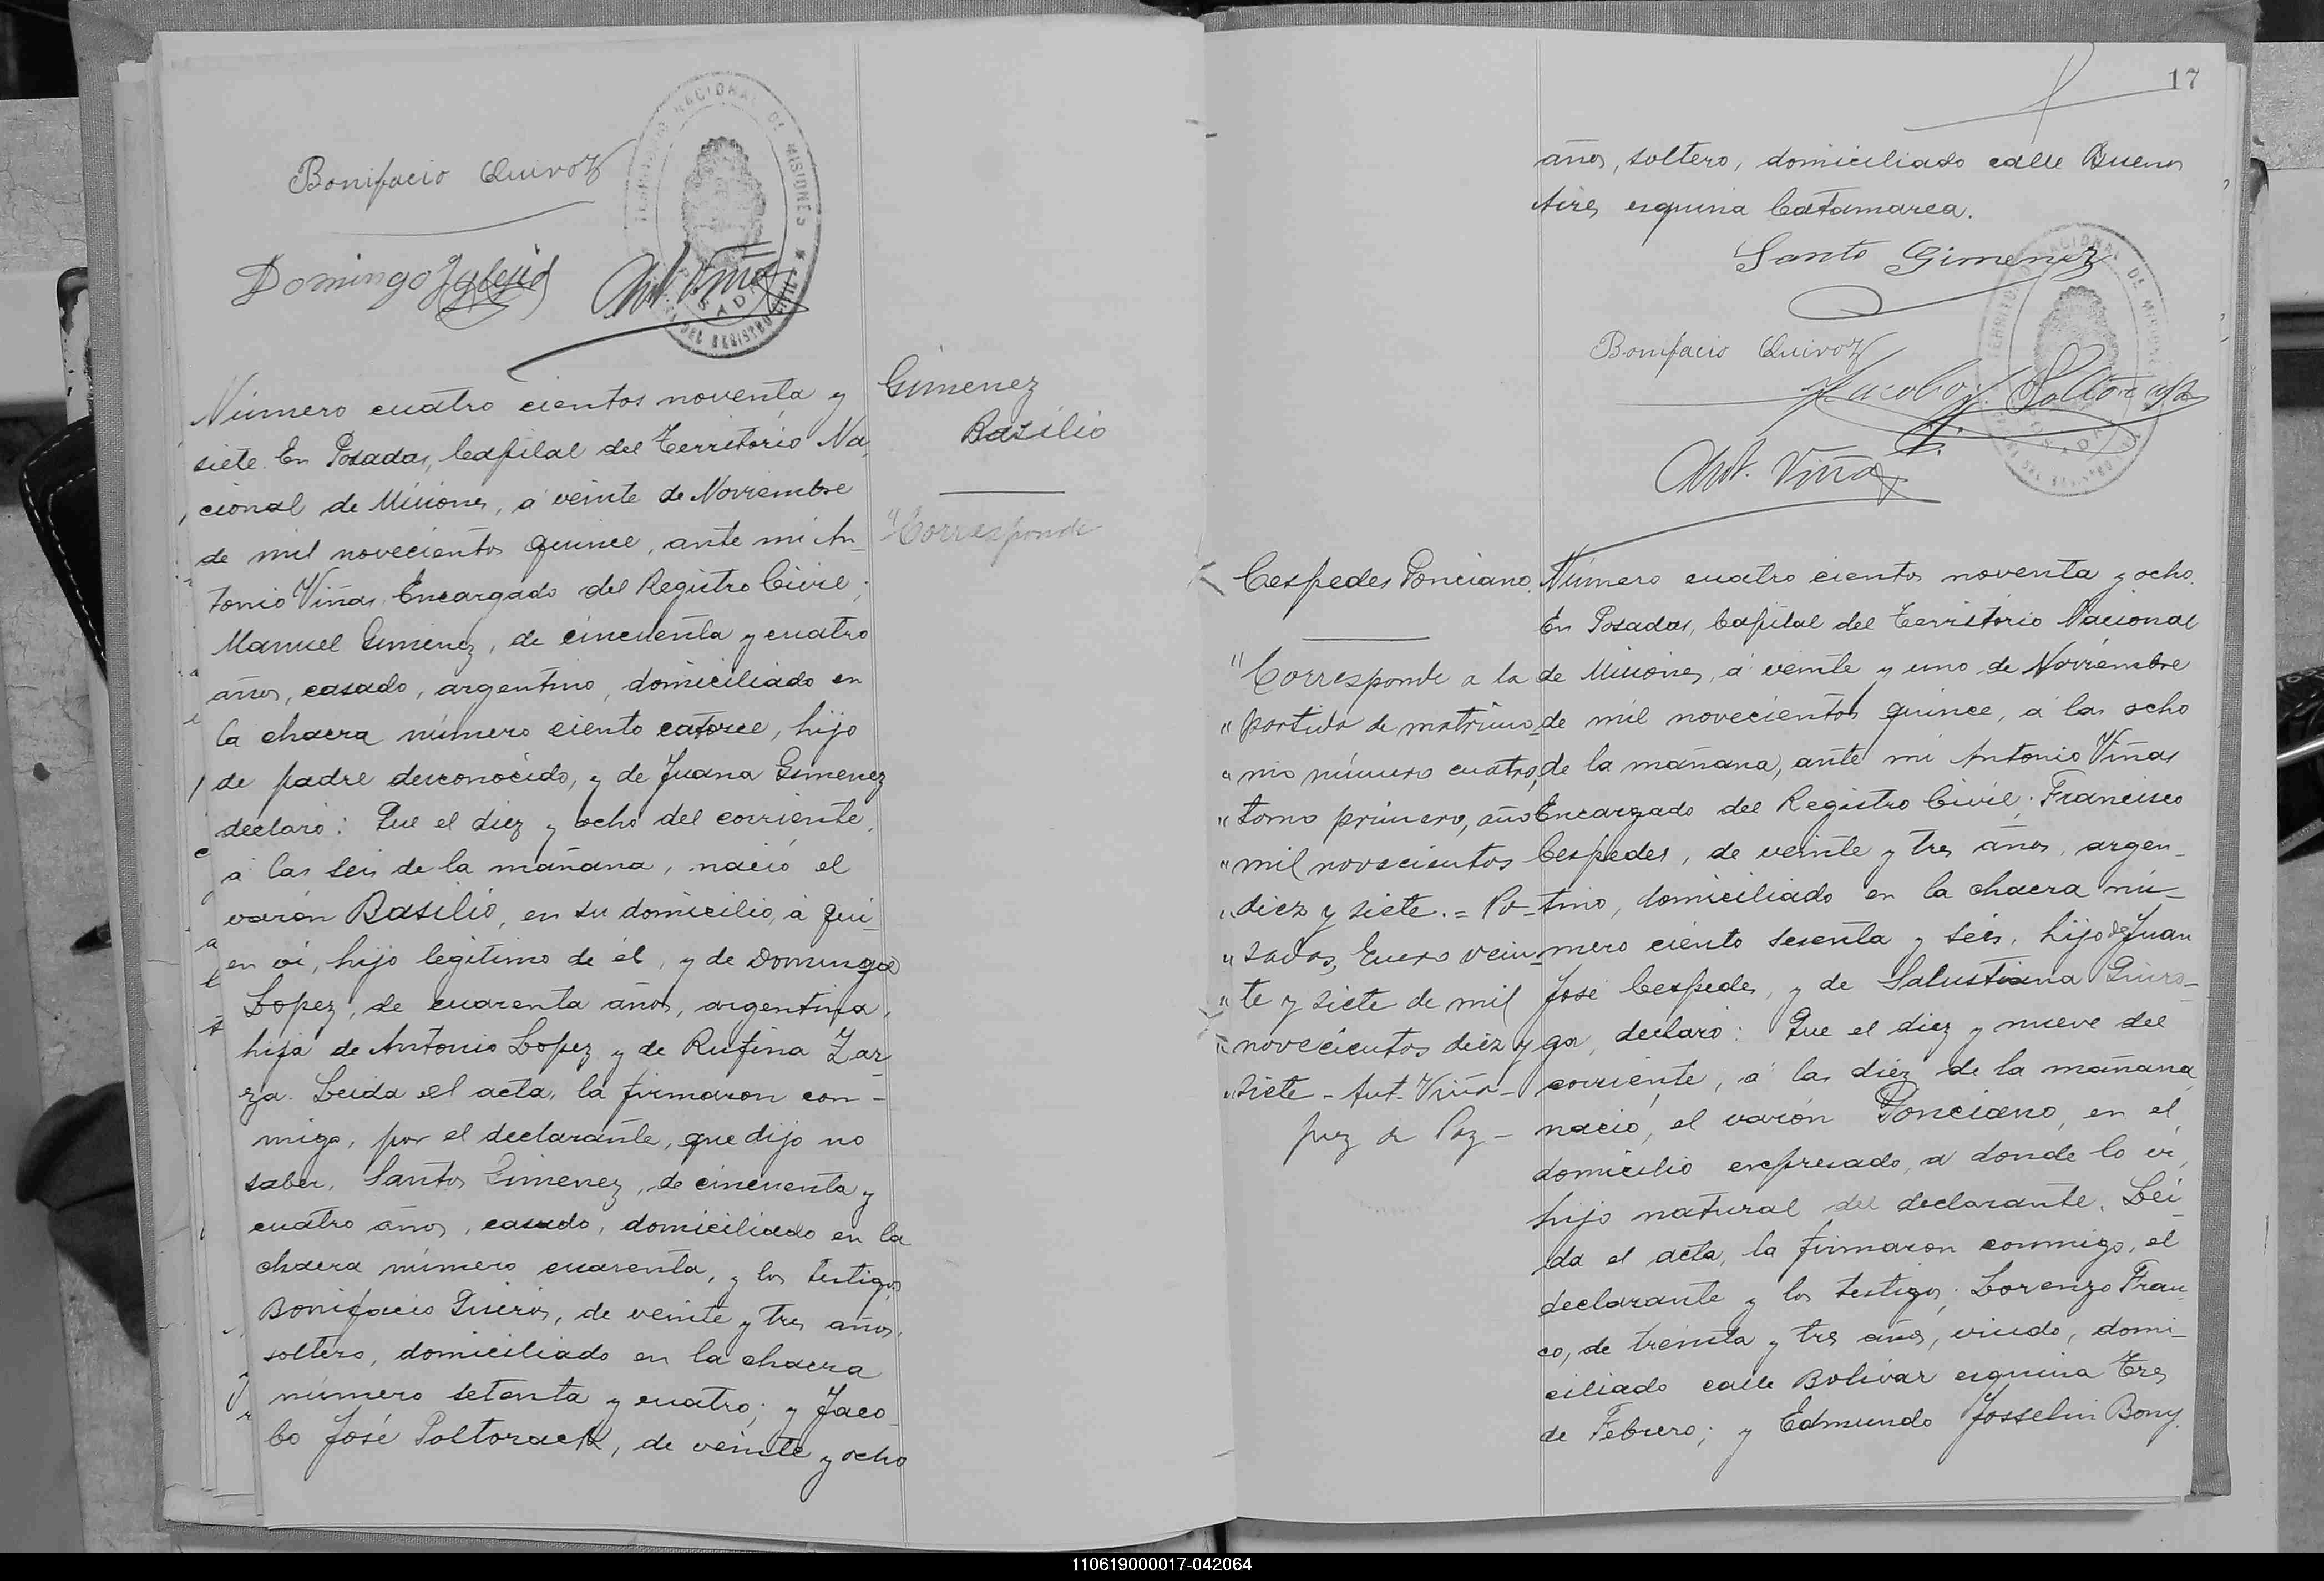 Bonifacio Quiroz
Domingo Iglesias
Ant. Viñas
TERRITORIO NACIONAL DE MISIONES
POSADAS
DEL REGISTRO CIVIL
Gimenez
Basilio
"Corresponde
Número cuatro cientos noventa y
siete. En Posadas, Capital del Territorio Na
cional de Misiones, á veinte de Noviembre
de mil novecientos quince, ante mi An_
tonio Viñas, Encargado del Registro Civil;
Manuel Gimenez, de cincuenta y cuatro
años, casado, argentino, domiciliado en
la chacra número ciento catorce, hijo
de padre desconocido, y de Juana Gimenez
declaró: Que el diez y ocho del corriente,
á las seis de la mañana, nació el
varón Basilio, en su domicilio, á qui_
en ví, hijo legitimo de él, y de Dominga
Lopez, de cuarenta años, argentina,
hija de Antonio Lopez y de Rufina Zar_
za. Leida el acta, la firmaron con-
migo, por el declarante, que dijo no
saber, Santos Gimenez, de cincuenta y
cuatro años, casado, domiciliado en la
chacra número cuarenta, y los testigos
Bonifacio Quiros, de veinte y tres años,
soltero, domiciliado en la chacra
número setenta y cuatro; y Jaco_
bo José Poltorack, de veinte y ocho
17
años, soltero, domiciliado calle Buenos
Aires esquina Catamarca.
Santo Gimenez
Bonifacio Quiroz
Jacobo J. Poltorack
Ant. Viñas
Cespedes Ponciano.
"Corresponde a la
"partida de matrimo_
"nio número cuatro,
"tomo primero, año
"mil novecientos
"diez y siete.= Po-
"sadas, Enero vein-
"te y siete de mil
"novecientos diez y
"siete - Ant. Viñas-
juez de Paz-
Número cuatro cientos noventa y ocho.
En Posadas, Capital del Territorio Nacional
de Misiones, á veinte y uno de Noviembre
de mil novecientos quince, á las ocho
de la mañana, ante mi Antonio Viñas
Encargado del Registro Civil; Francisco
Cespedes, de veinte y tres años, argen_
tino, domiciliado en la chacra nú_
mero ciento sesenta y seis, hijo de Juan
José Cespedes, y de Salustiana Quiro_
ga, declaró: Que el diez y nueve del
corriente, á las diez de la mañana
nació, el varón Ponciano, en el
domicilio expresado, a donde lo ví,
hijo natural del declarante. Lei_
da el acta, la firmaron conmigo, el
declarante y los testigos; Lorenzo Fran_
co, de treinta y tres años, viudo, domi_
ciliado calle Bolivar esquina Tres
de Febrero; y Edmundo Josselin Bony.
110619000017-042064